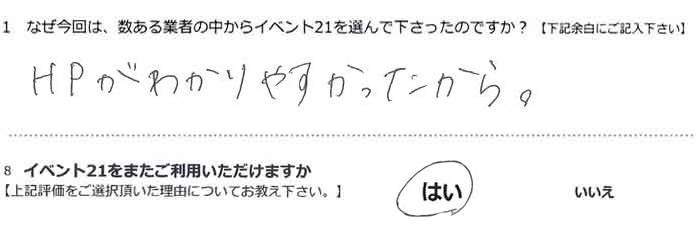 1 なぜ今回は、数ある業者の中からイベント21を選んで下さったのですか？【下記余白にご記入下さい】
HPがわかりやすかったから。
8 イベント21をまたご利用いただけますか
【上記評価をご選択頂いた理由についてお教え下さい。】 はい いいえ